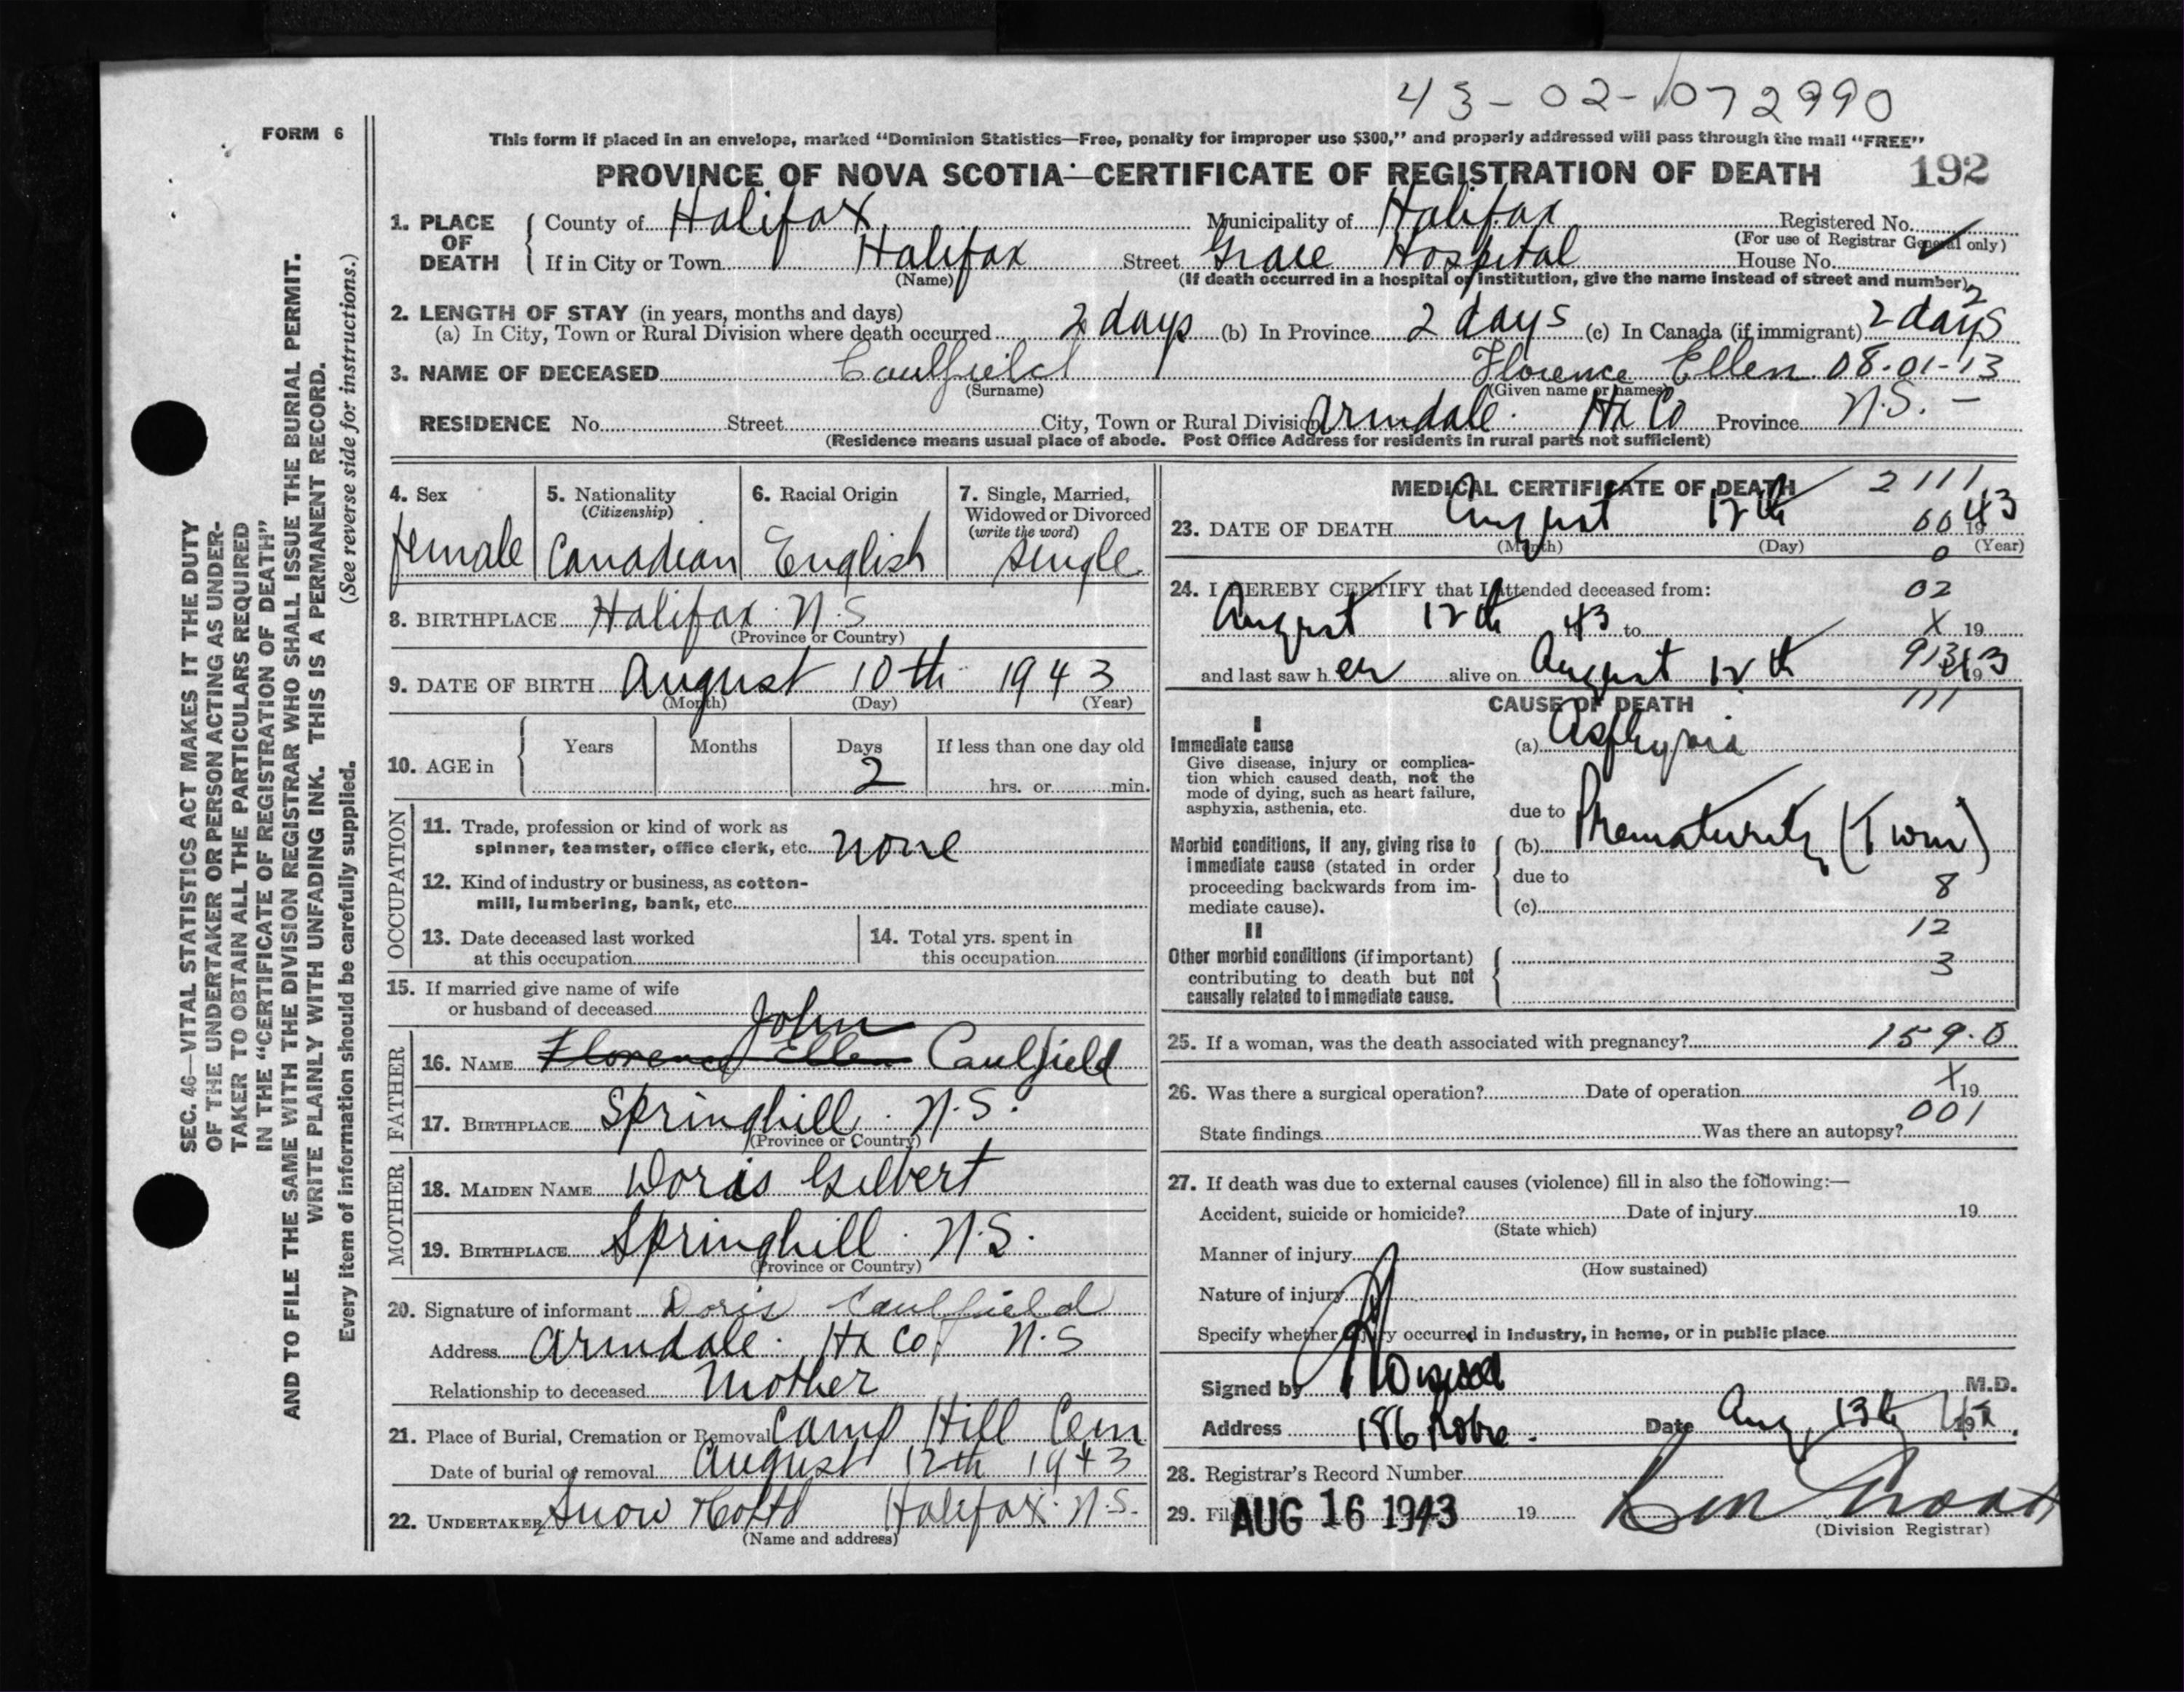 43-02-072990
FORM 6
This form if placed in an envelope, marked “Dominion Statistics—Free, penalty for improper use $300,” and properly addressed will pass through the mail “FREE”
PROVINCE OF NOVA SCOTIA—CERTIFICATE OF REGISTRATION OF DEATH 192
SEC. 46—VITAL STATISTICS ACT MAKES IT THE DUTY
OF THE UNDERTAKER OR PERSON ACTING AS UNDER-
TAKER TO OBTAIN ALL THE PARTICULARS REQUIRED
IN THE “CERTIFICATE OF REGISTRATION OF DEATH”
AND TO FILE THE SAME WITH THE DIVISION REGISTRAR WHO SHALL ISSUE THE BURIAL PERMIT.
WRITE PLAINLY WITH UNFADING INK. THIS IS A PERMANENT RECORD.
Every item of information should be carefully supplied. (See reverse side for instructions.)
1. PLACE OF DEATH County of Halifax Municipality of Halifax Registered No.
(For use of Registrar General only)
If in City or Town Halifax Street Grace Hospital House No.
(Name) (If death occurred in a hospital or institution, give the name instead of street and number)
2. LENGTH OF STAY (in years, months and days) 2
(a) In City, Town or Rural Division where death occurred 2 days (b) In Province 2 days (c) In Canada (if immigrant) 2 days
3. NAME OF DECEASED Caulfield Florence Ellen 08-01-13
(Surname) (Given name or names)
RESIDENCE No. Street City, Town or Rural Division Armdale. Hx Co Province N.S. -
(Residence means usual place of abode. Post Office Address for residents in rural parts not sufficient)
4. Sex 5. Nationality 6. Racial Origin 7. Single, Married,
(Citizenship) Widowed or Divorced
(write the word)
female Canadian English single
8. BIRTHPLACE Halifax N.S
(Province or Country)
9. DATE OF BIRTH August 10th 1943
(Month) (Day) (Year)
10. AGE in Years Months Days If less than one day old
2 hrs. or min.
OCCUPATION
11. Trade, profession or kind of work as
spinner, teamster, office clerk, etc. none
12. Kind of industry or business, as cotton-
mill, lumbering, bank, etc.
13. Date deceased last worked
at this occupation
14. Total yrs. spent in
this occupation
15. If married give name of wife
or husband of deceased
FATHER
John
16. NAME Florence Ellen Caulfield
17. BIRTHPLACE Springhill. N.S.
(Province or Country)
MOTHER
18. MAIDEN NAME Doris Gilbert
19. BIRTHPLACE Springhill. N.S.
(Province or Country)
20. Signature of informant Doris Caulfield
Address Armdale. Hx Co. N.S
Relationship to deceased Mother
21. Place of Burial, Cremation or Removal Camp Hill Cem
Date of burial or removal August 12th 1943
22. UNDERTAKER Snow & Co Ltd Halifax. N.S.
(Name and address)
MEDICAL CERTIFICATE OF DEATH 2111
23. DATE OF DEATH August 12th 60 1943
(Month) (Day) (Year)
0
24. I HEREBY CERTIFY that I attended deceased from: 02
August 12th 43 to X 19
and last saw her alive on August 12th 1943
CAUSE OF DEATH 111
I
Immediate cause
Give disease, injury or complica-
tion which caused death, not the
mode of dying, such as heart failure,
asphyxia, asthenia, etc.
(a) Asphyxia
due to
Morbid conditions, if any, giving rise to
immediate cause (stated in order
proceeding backwards from im-
mediate cause).
(b) Prematurity (Twin)
due to 8
(c)
12
II
Other morbid conditions (if important)
contributing to death but not
causally related to immediate cause.
3
25. If a woman, was the death associated with pregnancy? 159.0
26. Was there a surgical operation? Date of operation X 19
State findings Was there an autopsy? 001
27. If death was due to external causes (violence) fill in also the following:—
Accident, suicide or homicide? Date of injury 19
(State which)
Manner of injury
(How sustained)
Nature of injury
Specify whether injury occurred in industry, in home, or in public place
Signed by M.D.
Address 186 Robie. Date Aug 13th 19
28. Registrar's Record Number
29. Filed AUG 16 1943 19
(Division Registrar)